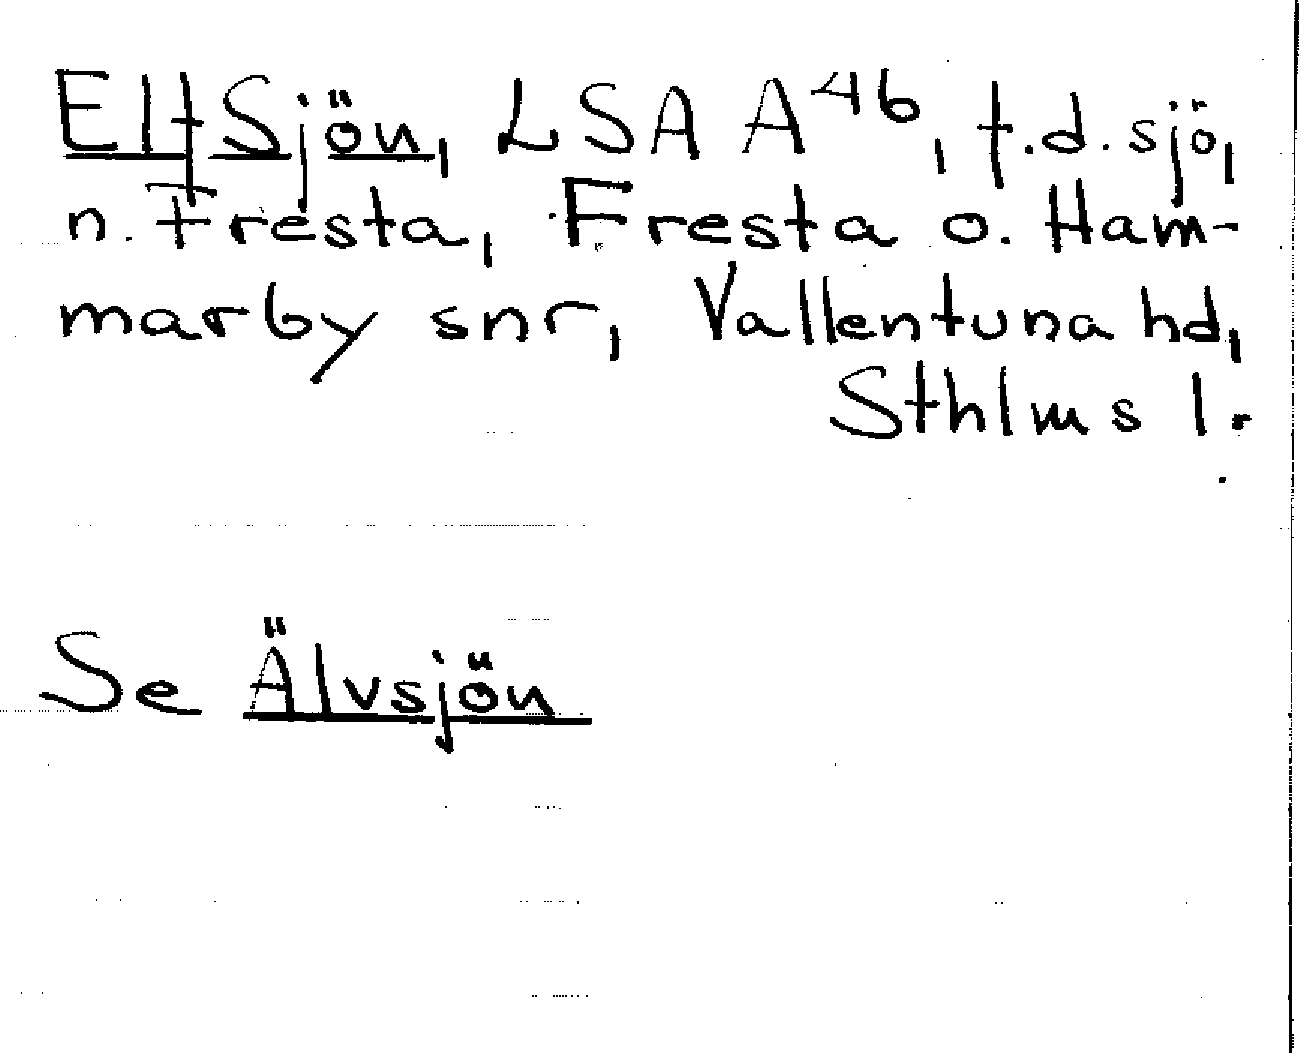 Elf Sjön, LSA A⁴⁶, f.d. sjö,
n. Fresta, Fresta o. Ham-
marby snr, Vallentuna hd,
Sthlms l.
Se Älvsjön